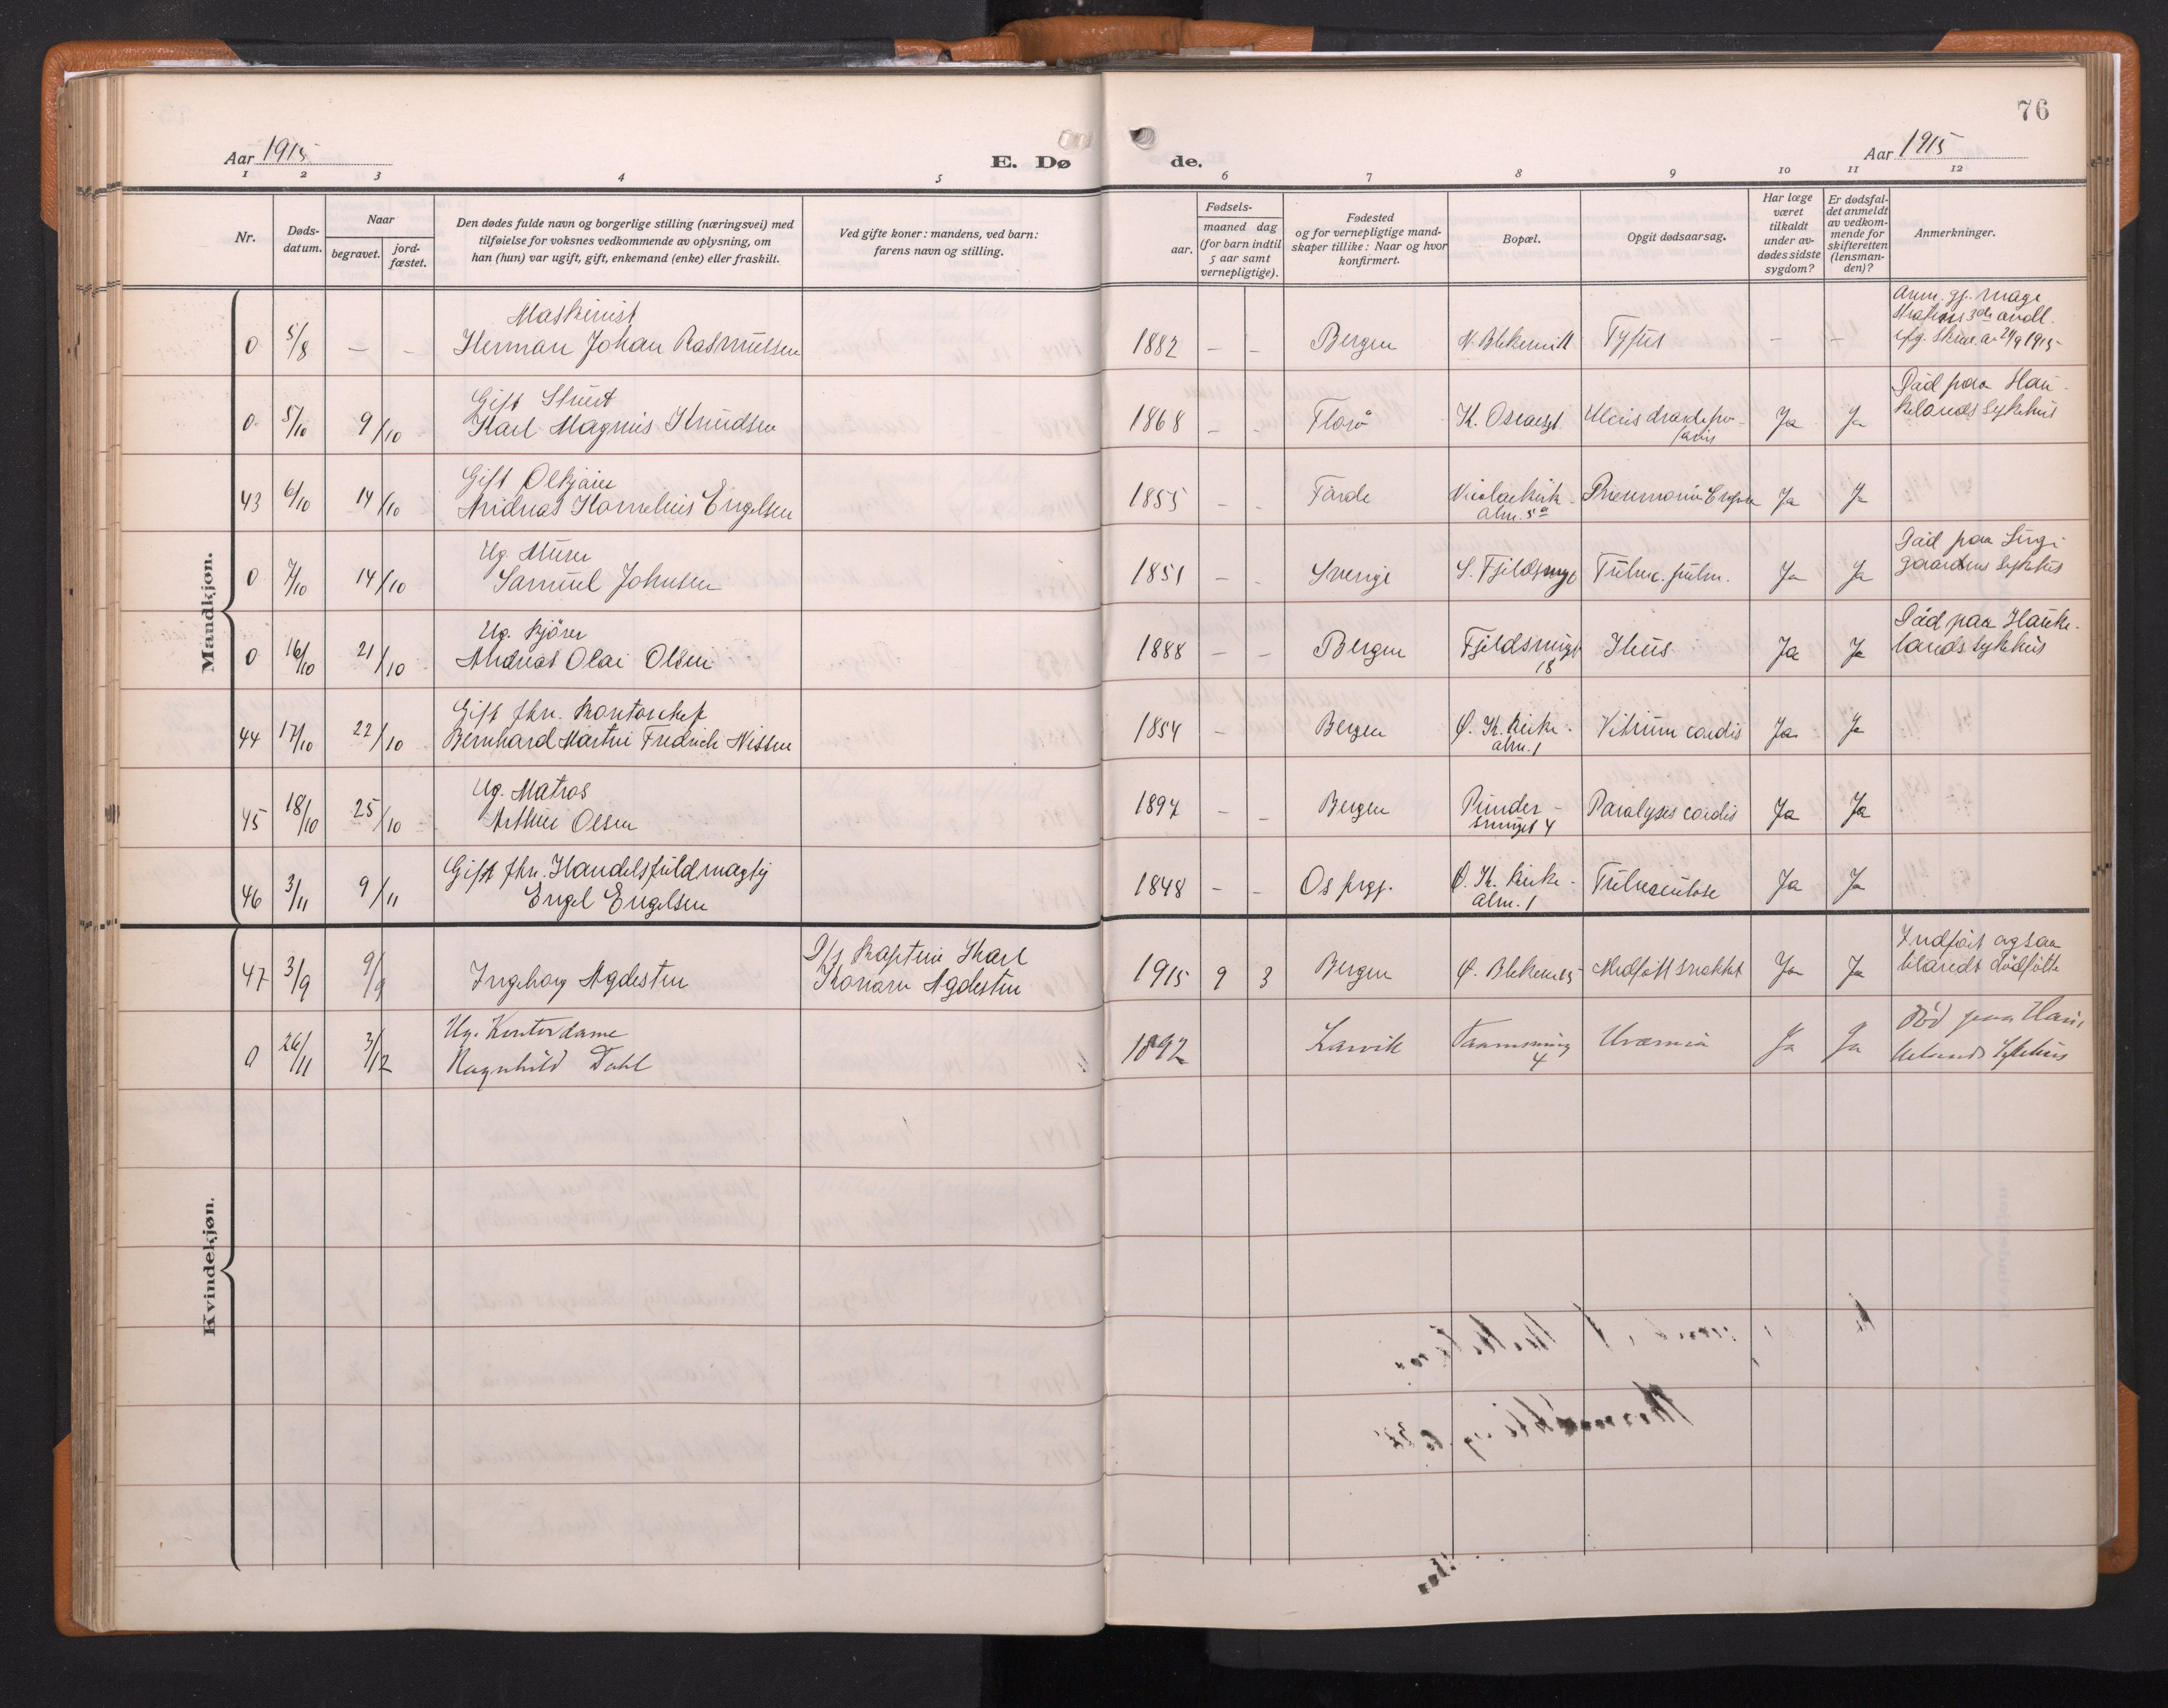 76
Aar 1915
E. Dø
de.
Aar 1915
1 2 3 4 5 6 7 8 9 10 11 12
Nr.
Døds-
datum.
Naar
begravet.
jord-
fæstet.
Den dødes fulde navn og borgerlige stilling (næringsvei) med
tilføielse for voksnes vedkommende av oplysning, om
han (hun) var ugift, gift, enkemand (enke) eller fraskilt.
Ved gifte koner: mandens, ved barn:
farens navn og stilling.
Fødsels-
aar.
maaned dag
(for barn indtil
5 aar samt
vernepligtige).
Fødested
og for vernepligtige mand-
skaper tillike: Naar og hvor
konfirmert.
Bopæl.
Opgit dødsaarsag.
Har læge
været
tilkaldt
under av-
dødes sidste
sygdom?
Er dødsfal-
det anmeldt
av vedkom-
mende for
skifteretten
(lensman-
den)?
Anmerkninger.
Mandkjøn.
Maskinist
0 5/8 – – Herman Johan Rasmussen 1882 – – Bergen Tyfus – –
3die
24/9 1915
Gift
0 5/10 9/10 Karl Magnus Knudsen 1868 – - Florø Ulcus Ja Ja
Død paa Hau-
kelands sykehus
Gift
43 6/10 14/10 Andreas Kornelius Engelsen 1855 – - Førde Nicolaikirk-
alm. 5a
Pneumonia Ja Ja
Ug. Murer
0 7/10 14/10 Samuel Johnsen 1851 – - Sverige Tuberc. pulm. Ja Ja
Død paa
gaardens sykehus
Ug. Kjører
0 16/10 21/10 Andreas Olai Olsen 1888 – – Bergen Fjeldsmugt
18
Ileus Ja Ja
Død paa Hauke-
lands sykehus
Gift fhv. Kontorchef
44 17/10 22/10 Bernhard Martin Fredrich Nissen 1854 – Bergen Ø. K. Kirke-
alm. 1
Vitium cordis Ja Ja
Ug. Matros
45 18/10 25/10 Arthur Olsen 1897 – – Bergen Pinder-
smuget 4
Paralyses cordis Ja Ja
Gift fhv. Handelsfuldmægtig
46 3/11 9/11 Engel Engelsen 1848 – – Os prgj. Ø. K. Kirke-
alm. 1
Tuberculose Ja Ja
Kvindekjøn.
47 3/9 9/9 Ingeborg Agdesten
Kaptein Karl
Konow Agdesten
1915 9 3 Bergen Medfött svakhet Ja Ja
Indført ogsaa
blandt dødfötte
Ug. Kontordame
0 26/11 3/12 Ragnhild Dahl 1892 Larvik 4 Uræmia Ja Ja
Død paa Hau-
kelands Sykehus